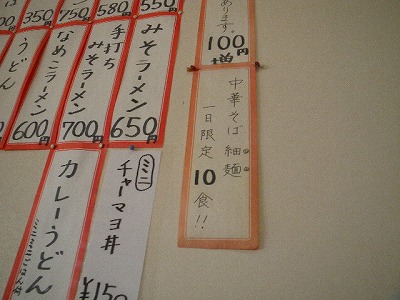 350円
750円
580円
550
あります。
100円
増
うどん
なめこラーメン
600円
手打ち
みそラーメン
700円
みそラーメン
650円
中華そば 細麺
一日限定10食!!
カレーうどん
ミニ
チャーマヨ丼
¥150